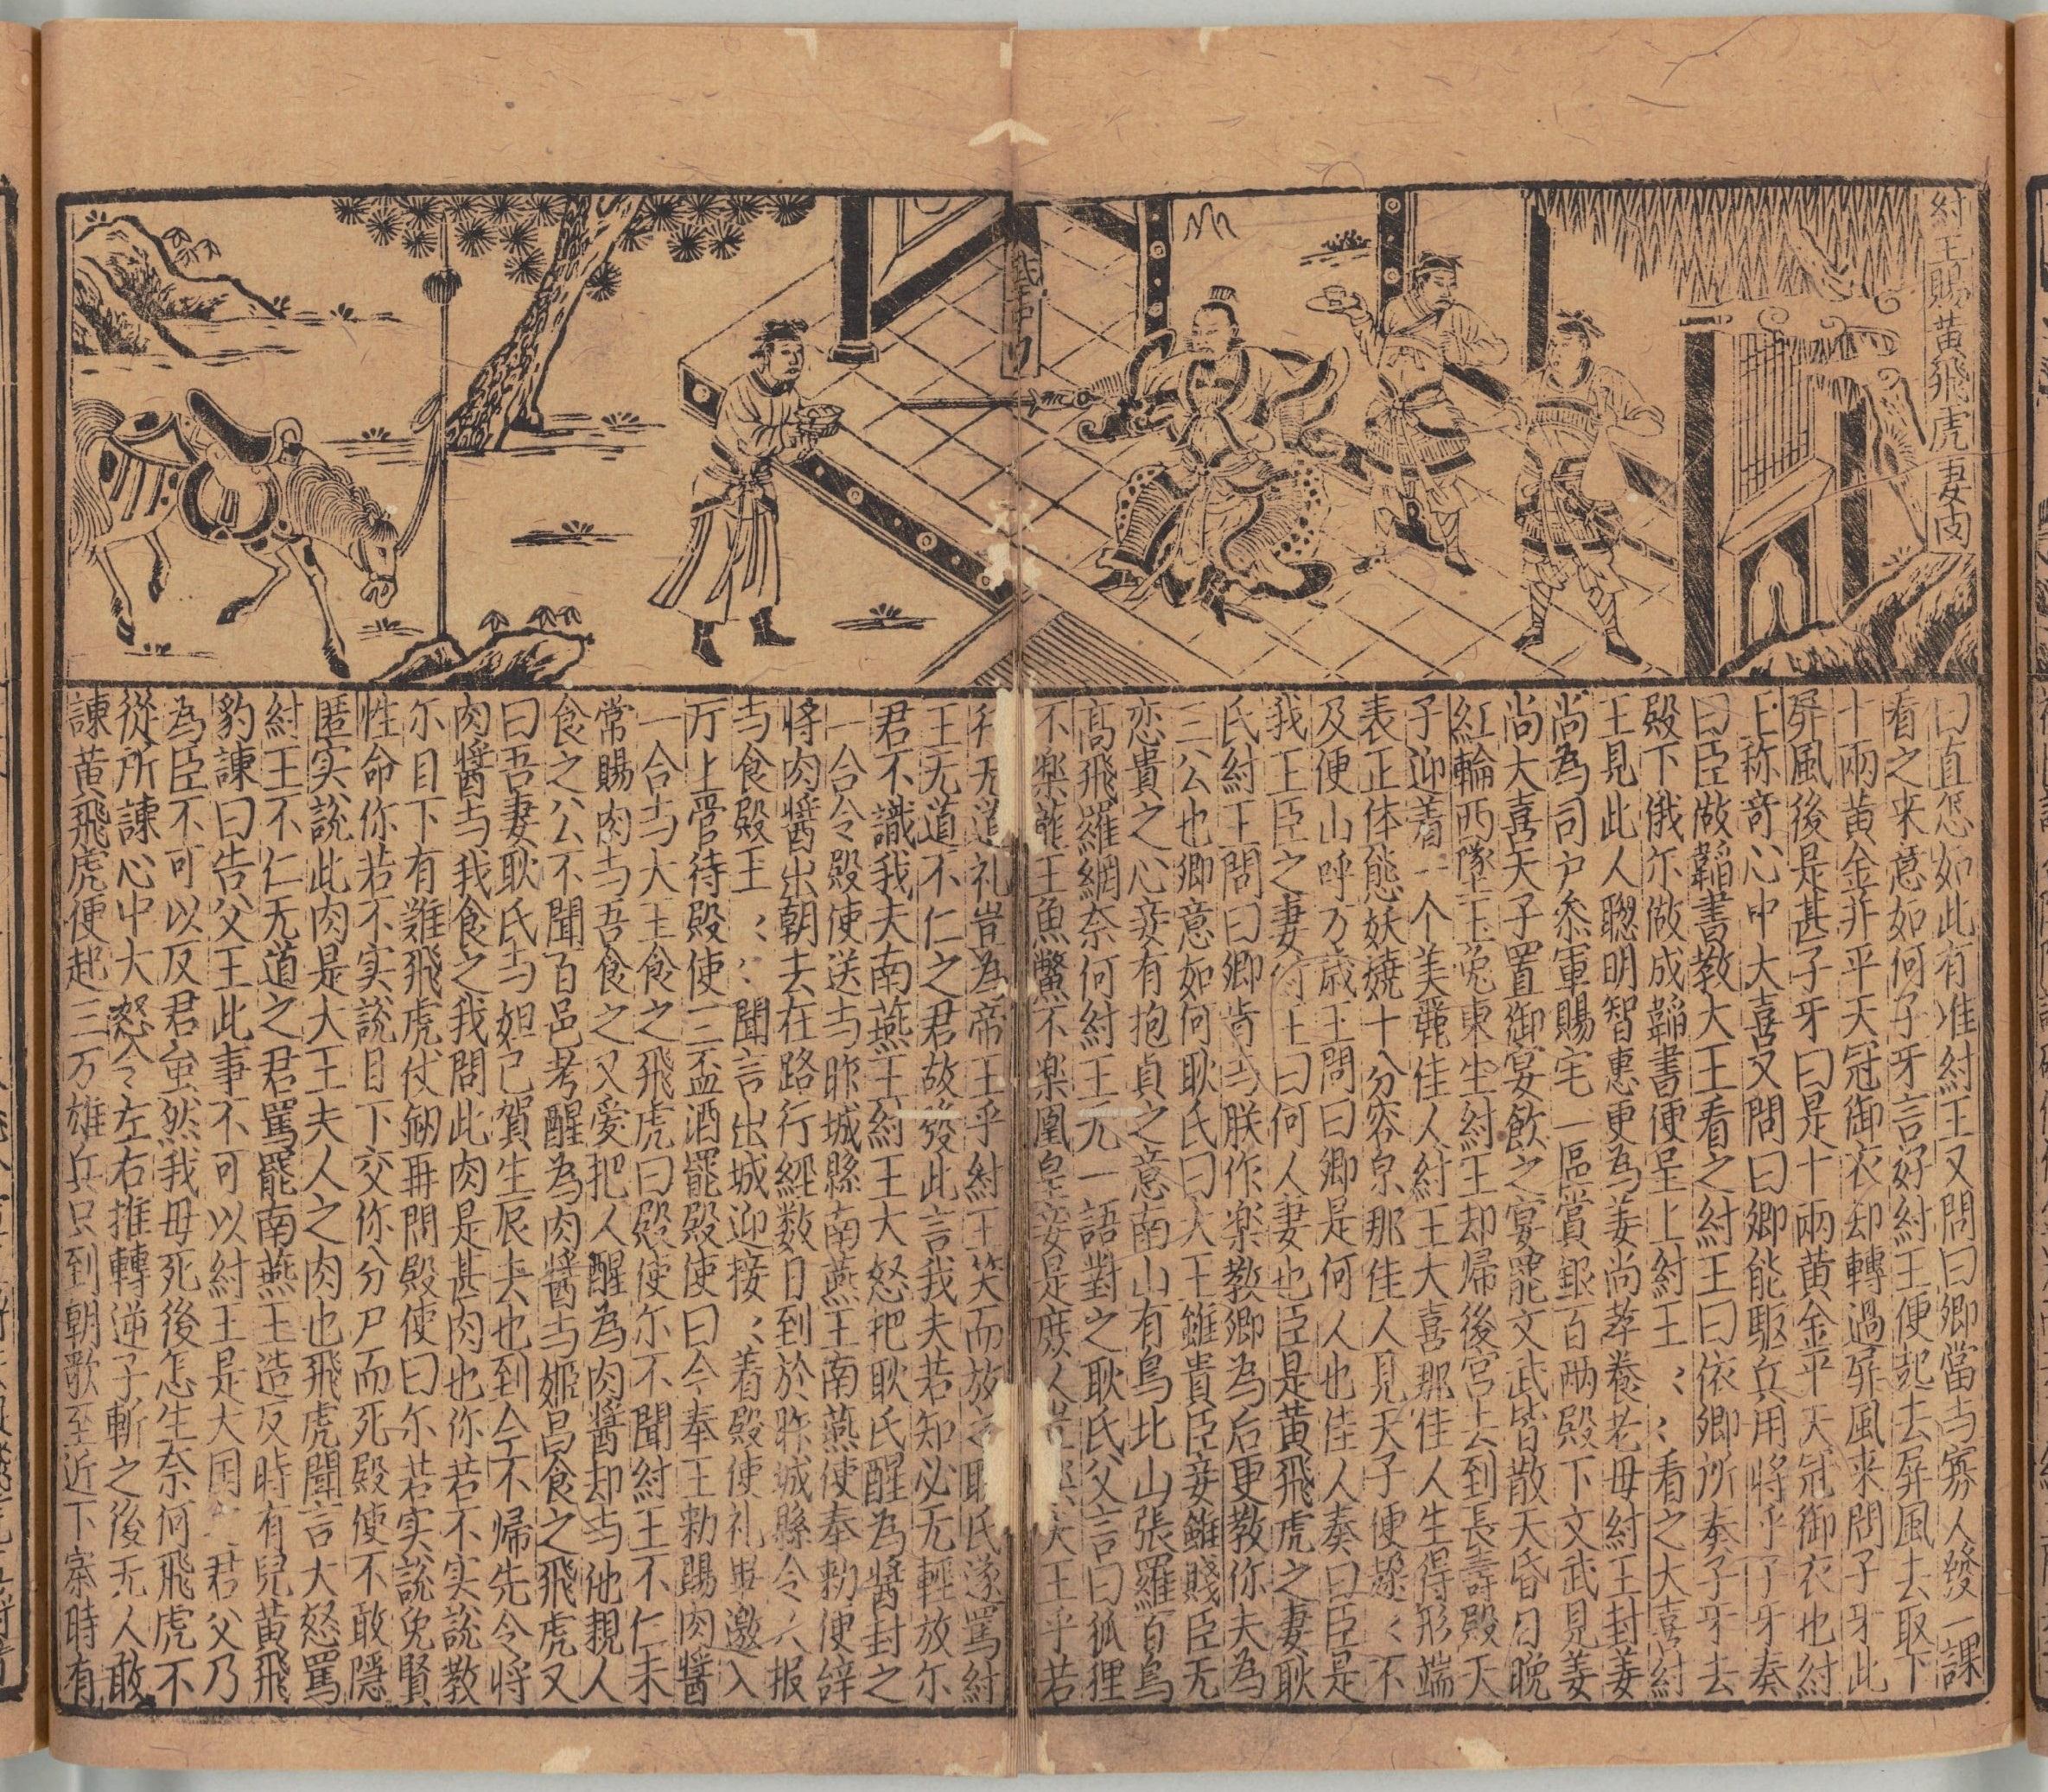 紂王賜黃飛虎妻肉
曰直怎如此有准紂王又問曰卿當与寡人發一課
看之來意如何子牙言好紂王便起去屏風去取下
十兩黃金并平天冠御衣却轉過屏風来問子牙此
屏風後是甚子牙曰是十兩黃金平天冠御衣也紂
王称奇心中大喜又問曰卿能駆兵用將乎子牙奏
曰臣做韜書教大王看之紂王曰依卿所奏子牙去
殿下俄尔做成韜書便呈上紂王〻〻看之大喜紂
王見此人聰明智惠更為姜尚孝養老母紂王封姜
尚為司户叅軍賜宅一區賞銀百兩殿下文武見姜
尚大喜天子置御宴飲之宴罷文武皆散天昏日晚
紅輪西墜玉兔東生紂王却帰後宮去到長壽殿天
子迎着一个美麗佳人紂王大喜那佳人生得形端
表正体態妖嬈十分容皃那佳人見天子便𢷎〻不
及便山呼万歲王問曰卿是何人也佳人奏曰臣是
我王臣之妻紂王曰何人妻也臣是黃飛虎之妻耿
氏紂王問曰卿肯与朕作楽教卿為后更教你夫為
三公也卿意如何耿氏曰大王雖貴臣妾雖賤臣无
恋貴之心妾有抱貞之意南山有烏北山張羅百烏
高飛羅網奈何紂王无一語對之耿氏父言曰狐狸
不楽龍王魚鱉不楽凰皇妾是庶人豈楽大王乎若
王无道不仁之君故發此言我夫若知必无輕放尔
君不識我夫南燕王紂王大怒把耿氏醒為醬封之
一合令殿使送与昨城縣南燕王南燕使奉勑便辞
將肉醬出朝去在路行經数日到於昨城縣令人报
与食殿王〻〻聞言出城迎接〻着殿使礼畢邀入
厅上管待殿使三盃酒罷殿使曰今奉王勑賜肉醬
一合与大王食之飛虎曰殿使尔不聞紂王不仁未
常賜肉与吾食之又爱把人醒為肉醬却与他親人
食之公不聞百邑考醒為肉醬与姬昌食之飛虎又
曰吾妻耿氏与妲己賀生辰去也到今不帰先令将
肉醬与我食之我問此肉是甚肉也你若不实說教
尔目下有難飛虎仗劒再問殿使曰尔若实說免賢
性命你若不实說目下交你分尸而死殿使不敢隱
匿实說此肉是大王夫人之肉也飛虎聞言大怒罵
紂王不仁无道之君罵罷南燕王造反時有兒黃飛
豹諫曰告父王此事不可以紂王是大国之君父乃
為臣不可以反君虽然我母死後怎生奈何飛虎不
從所諫心中大怒令左右推轉逆子斬之後无人敢
諫黄飛虎便起三万雄兵只到朝歌至近下寨時有